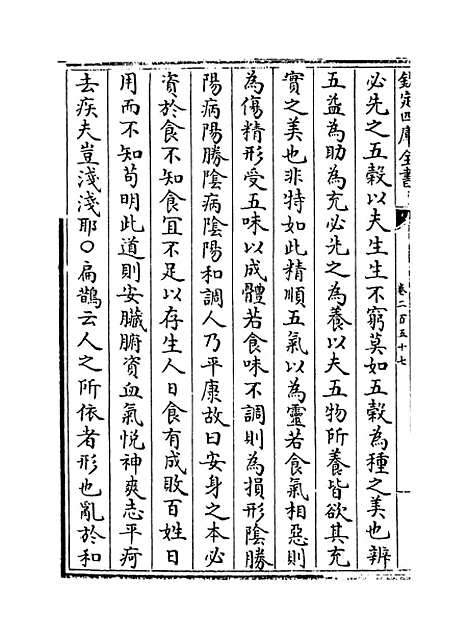 欽定四庫全書
卷二百五十七
必先之五穀以夫生生不窮莫如五穀為種之美也辨
五益為助為充必先之為養以夫五物所養皆欲其充
實之美也非特如此精順五氣以為靈若食氣相惡則
為傷精形受五味以成體若食味不調則為損形陰勝
陽病陽勝陰病陰陽和調人乃平康故曰安身之本必
資於食不知食宜不足以存生人日食有成敗百姓日
用而不知苟明此道則安臟腑資血氣悅神爽志平疴
去疾夫豈淺淺耶○扁鵲云人之所依者形也亂於和